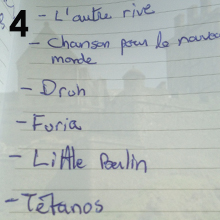 4
- L'autre rive
- Chanson pour le nouveau
monde
- Druh
- Furia
- Little Boulin
- Tétanos